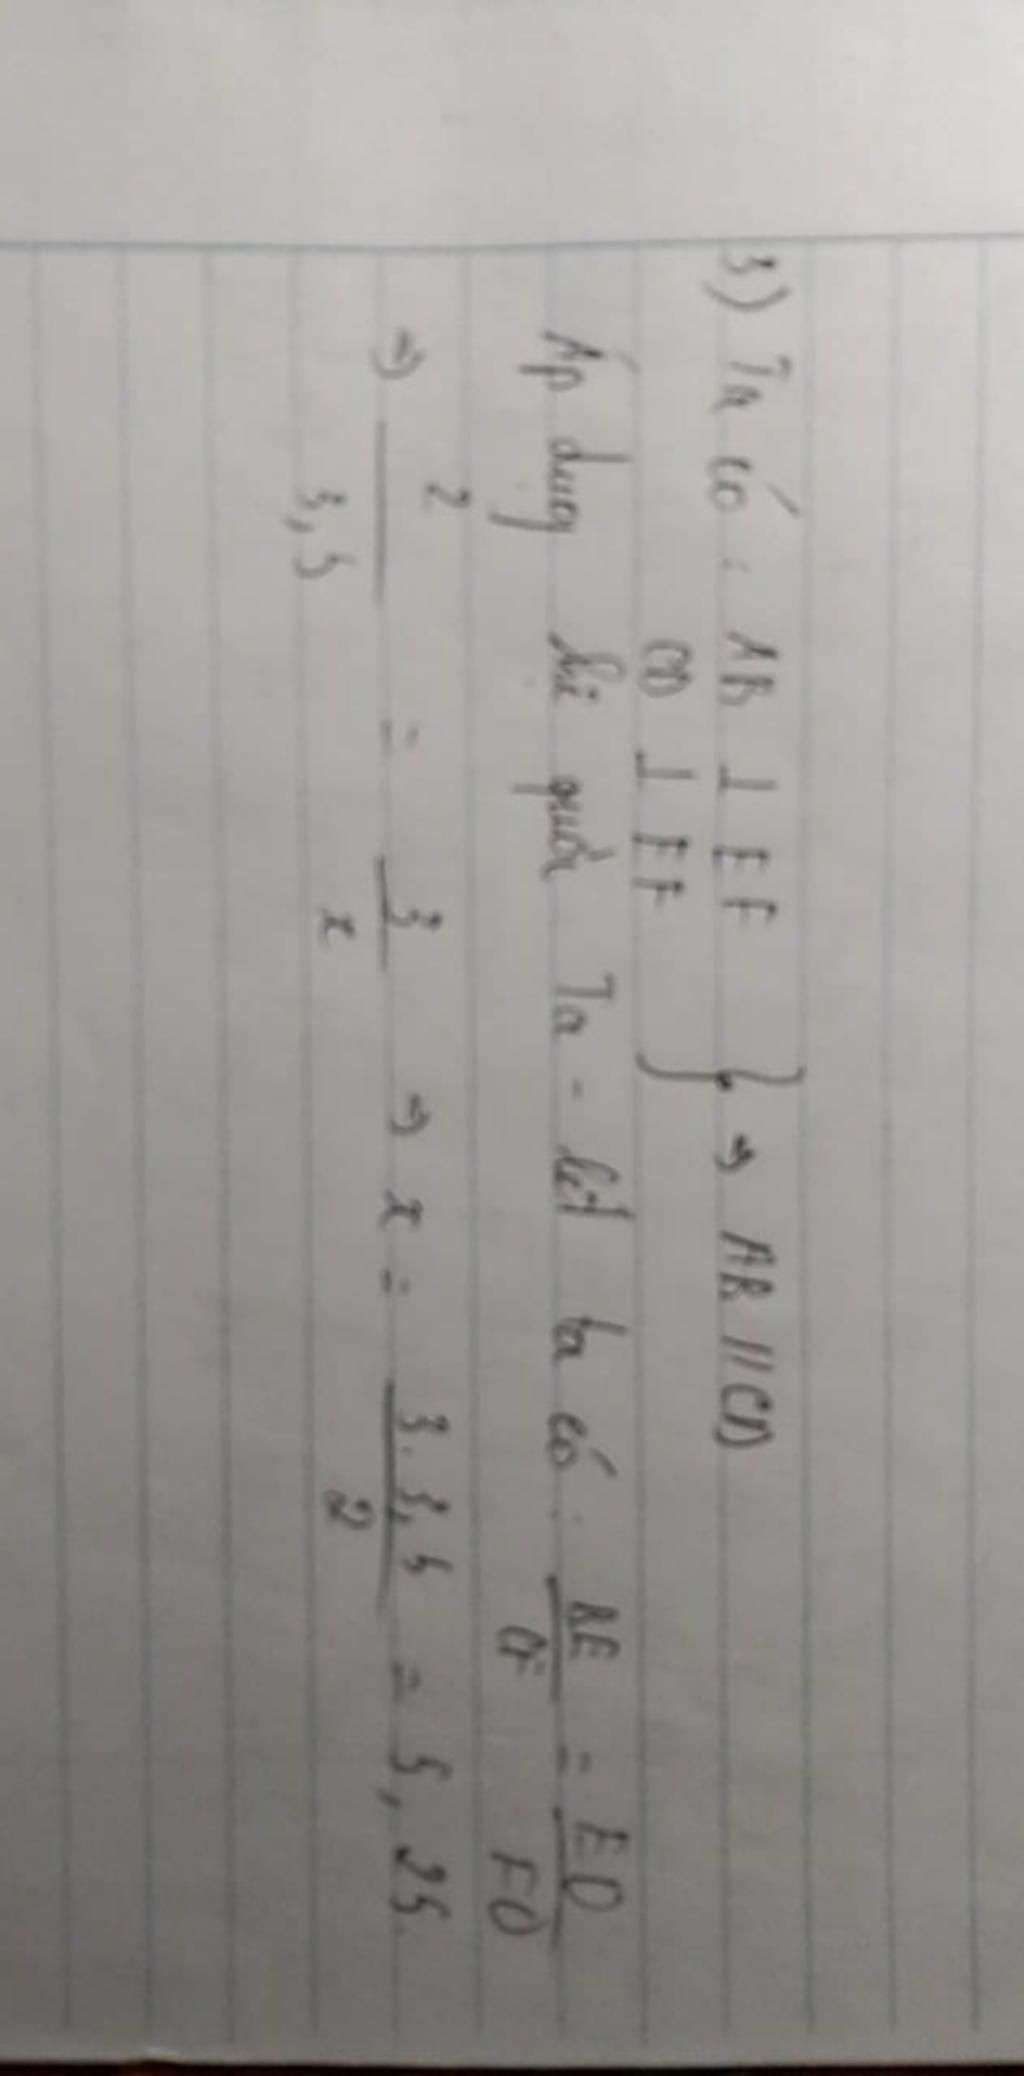 3) Ta có : AB ⊥ EF
CD ⊥ EF } ⇒ AB // CD
Áp dụng hệ quả Ta - lét ta có : BE/CF = EO/FO
⇒ 2/3,5 = 3/x ⇒ x = 3.3,5/2 = 5,25.